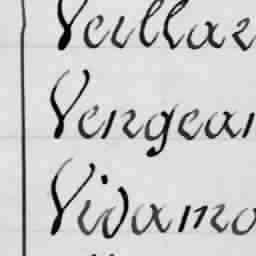 Veillaz
Vengean
Vidamo